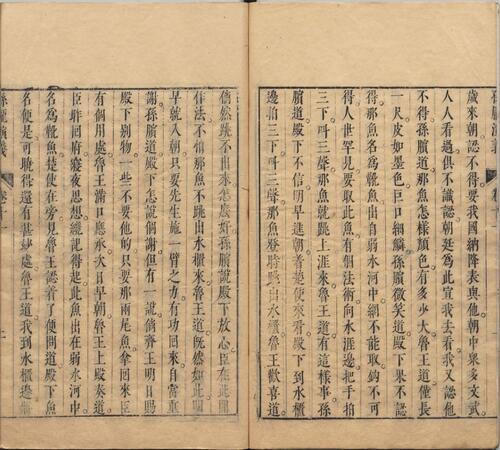 歲來朝認不得要我國納降表與他朝中衆多文武
人人看過俱不識認朝廷爲此宣我去看我又認他
不得孫臏道那魚怎樣顔色有多少大魯王道僅長
一尺皮如墨色巨口細鱗孫臏微笑道殿下果不認
得那魚名爲觥魚出自弱水河中網不能取鈎不可
得人世罕見要取此魚有個法術向水涯邊把手拍
三下叫三聲那魚就跳上涯來魯王道有這樣事孫
臏道殿下不信明早進朝著楚使來看殿下到水櫃
邊拍三下叫三聲那魚登時跳出水櫃魯王歡喜道
倘然跳不出來怎處好孫臏說殿下放心臣在此間
作法不怕那魚不跳出水櫃來魯王道既然如此明
早就入朝只要先生施一臂之力有功回來自當重
謝孫臏道殿下怎說個謝但有一說倘齊王明日賜
殿下别物一些不要他的只要那兩尾魚拿回來臣
有個用處魯王滿口應承次日早朝魯王上殿奏道
臣昨回府寢夜思想纔記得起此魚出在弱水河中
名爲觥魚楚使在旁見魯王認着了便問道殿下魚
名便是可曉得還有甚妙處魯王道我到水櫃邊
孫龐演義 卷十一 上